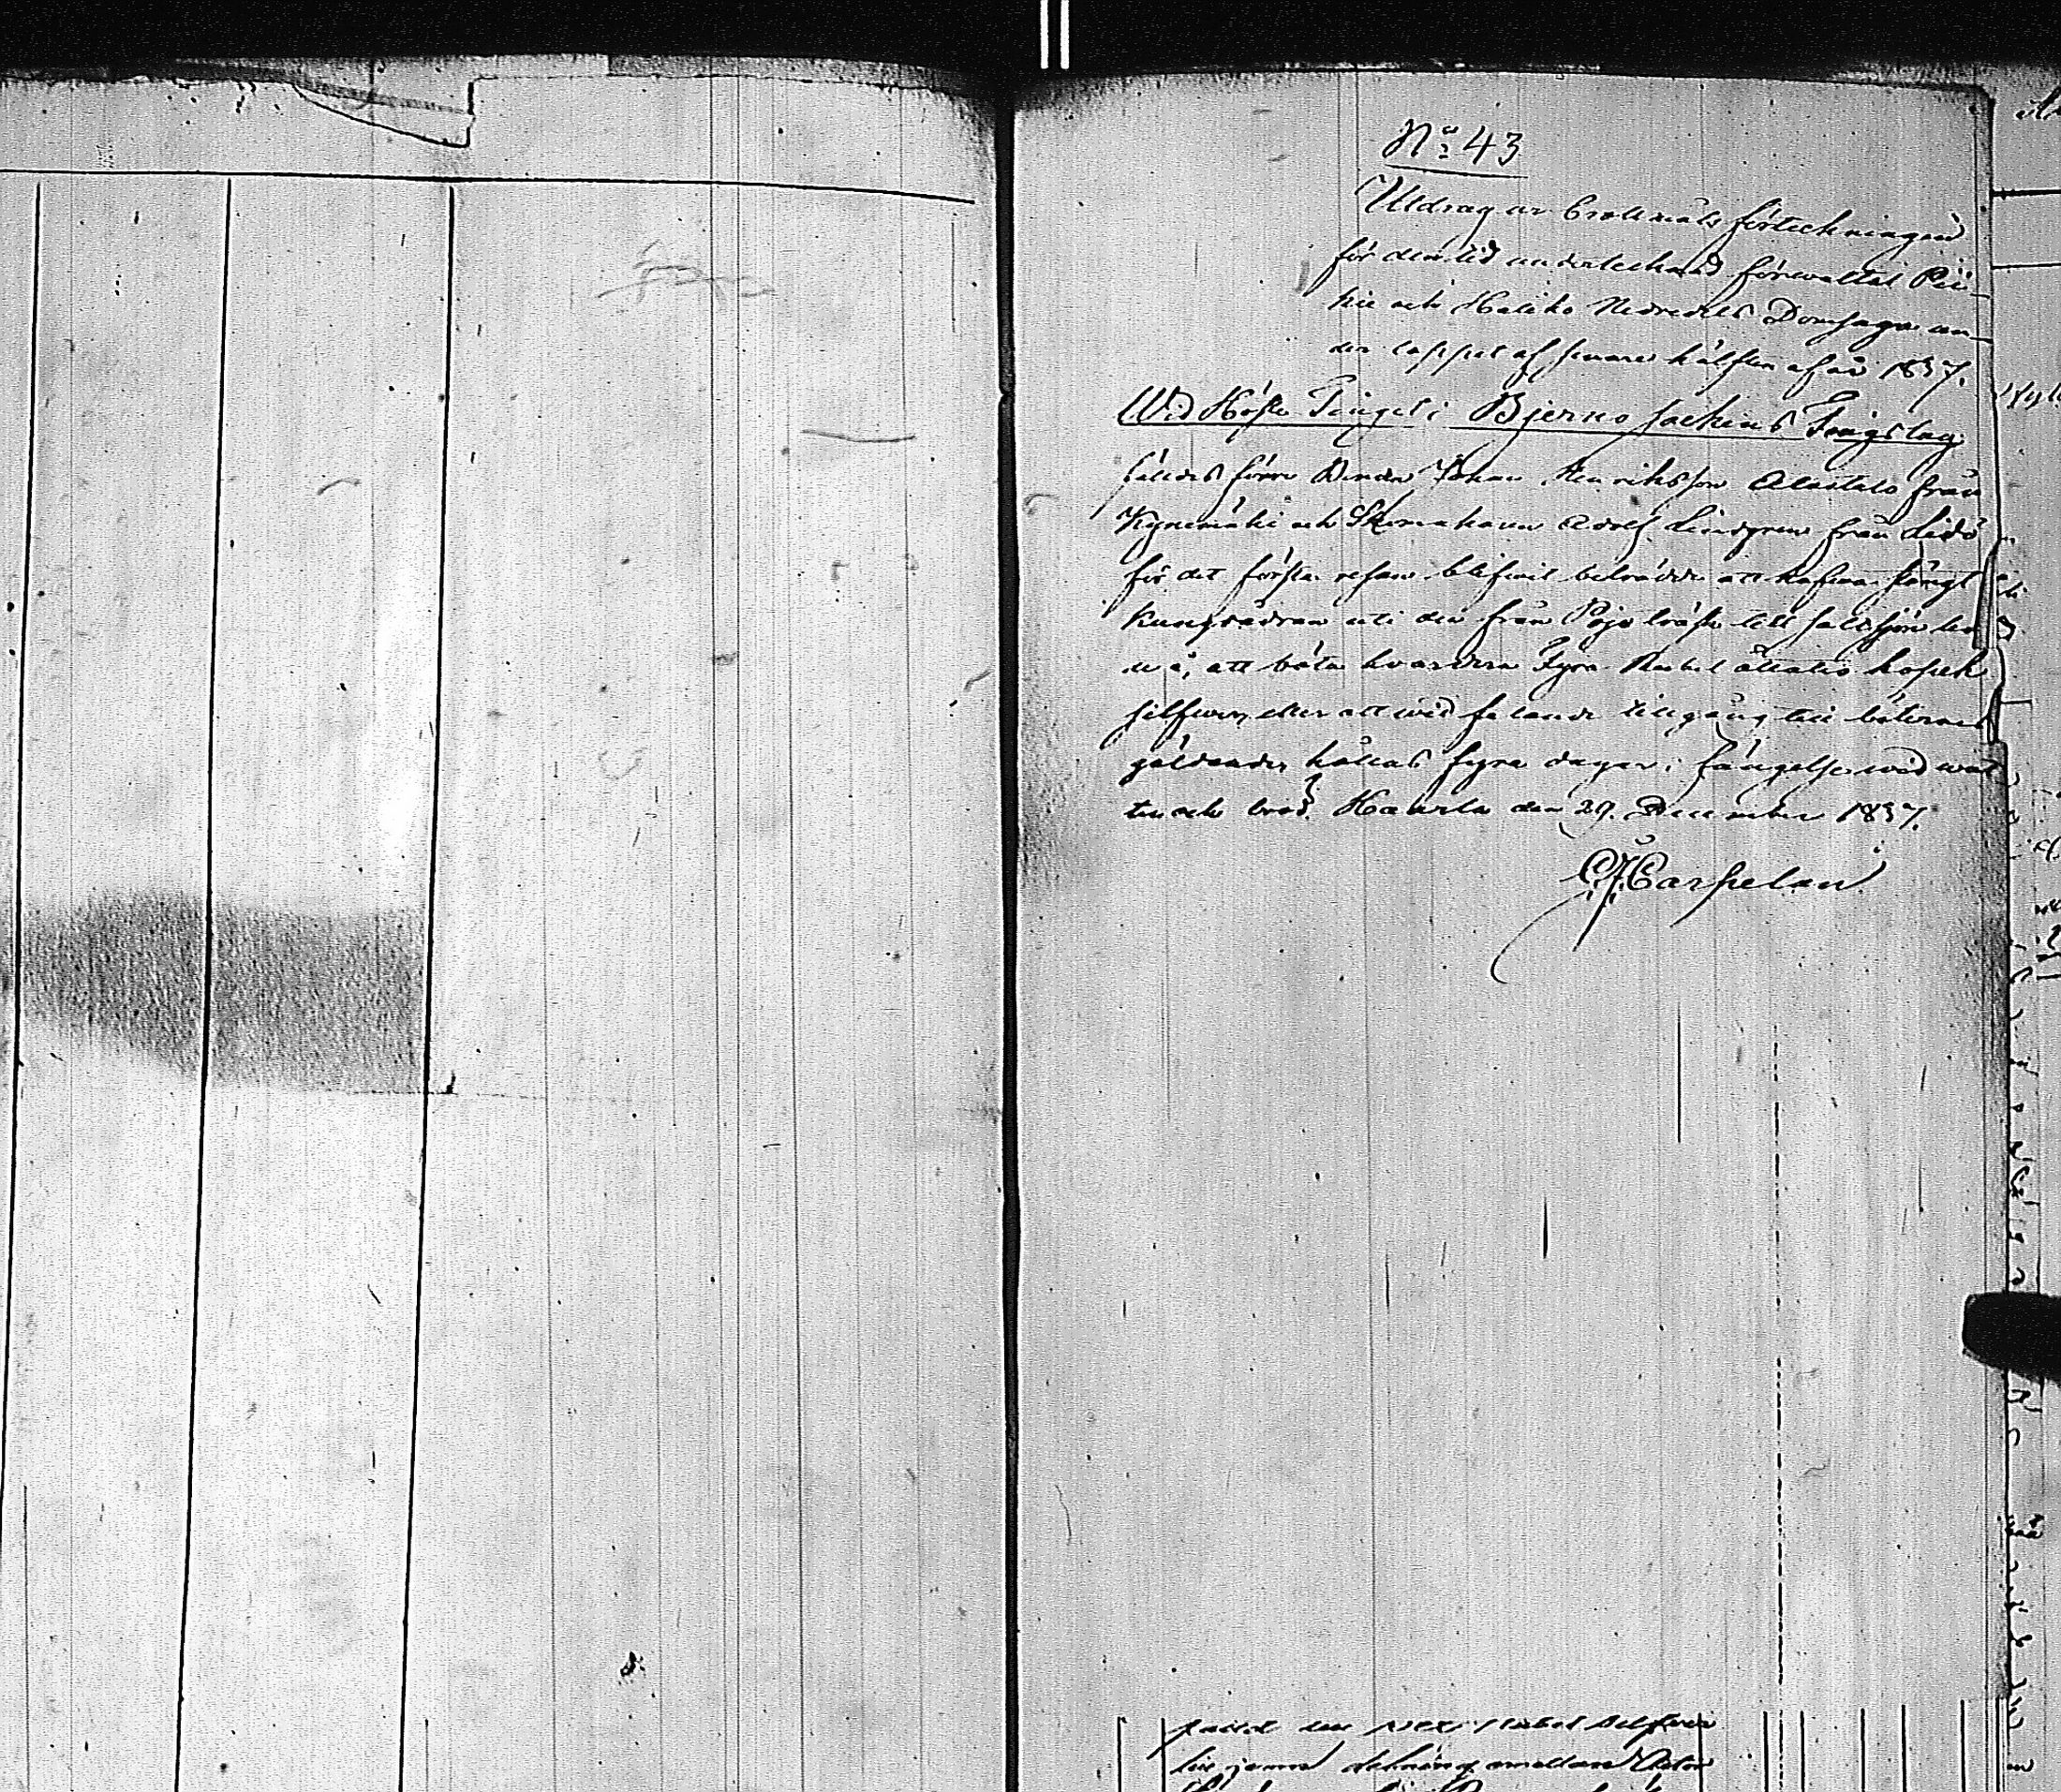 No 43
Utdrag ur Brottmåls förteckningen
för den tid undertecknad förwaltat Pii-
kie och Haliko Nedredels Domsaga un-
der loppet af senare hälften af år 1837.
Wid Höste Tinget i Bjerno sockens Tingslag
fäldes förre Bonden Johan Henriksson Alaitalo från
Kynimäki och Skomakaren Adolf Lindgren från
för det första resan blifwit beträdde att hafwa stängt
kungsådran uti den från Pojo träsk till saltsjön
att böta hvardera Fyra Rubel åttatio kopek
silfwer, eller att wid felande tillgång till böternes
gäldande, hållas fyra dagar i fängelse wid wat
ten och bröd. Haarla den 29. December 1837.
CJ Carpelan
Rubel Silfwer
jemn delning emellan